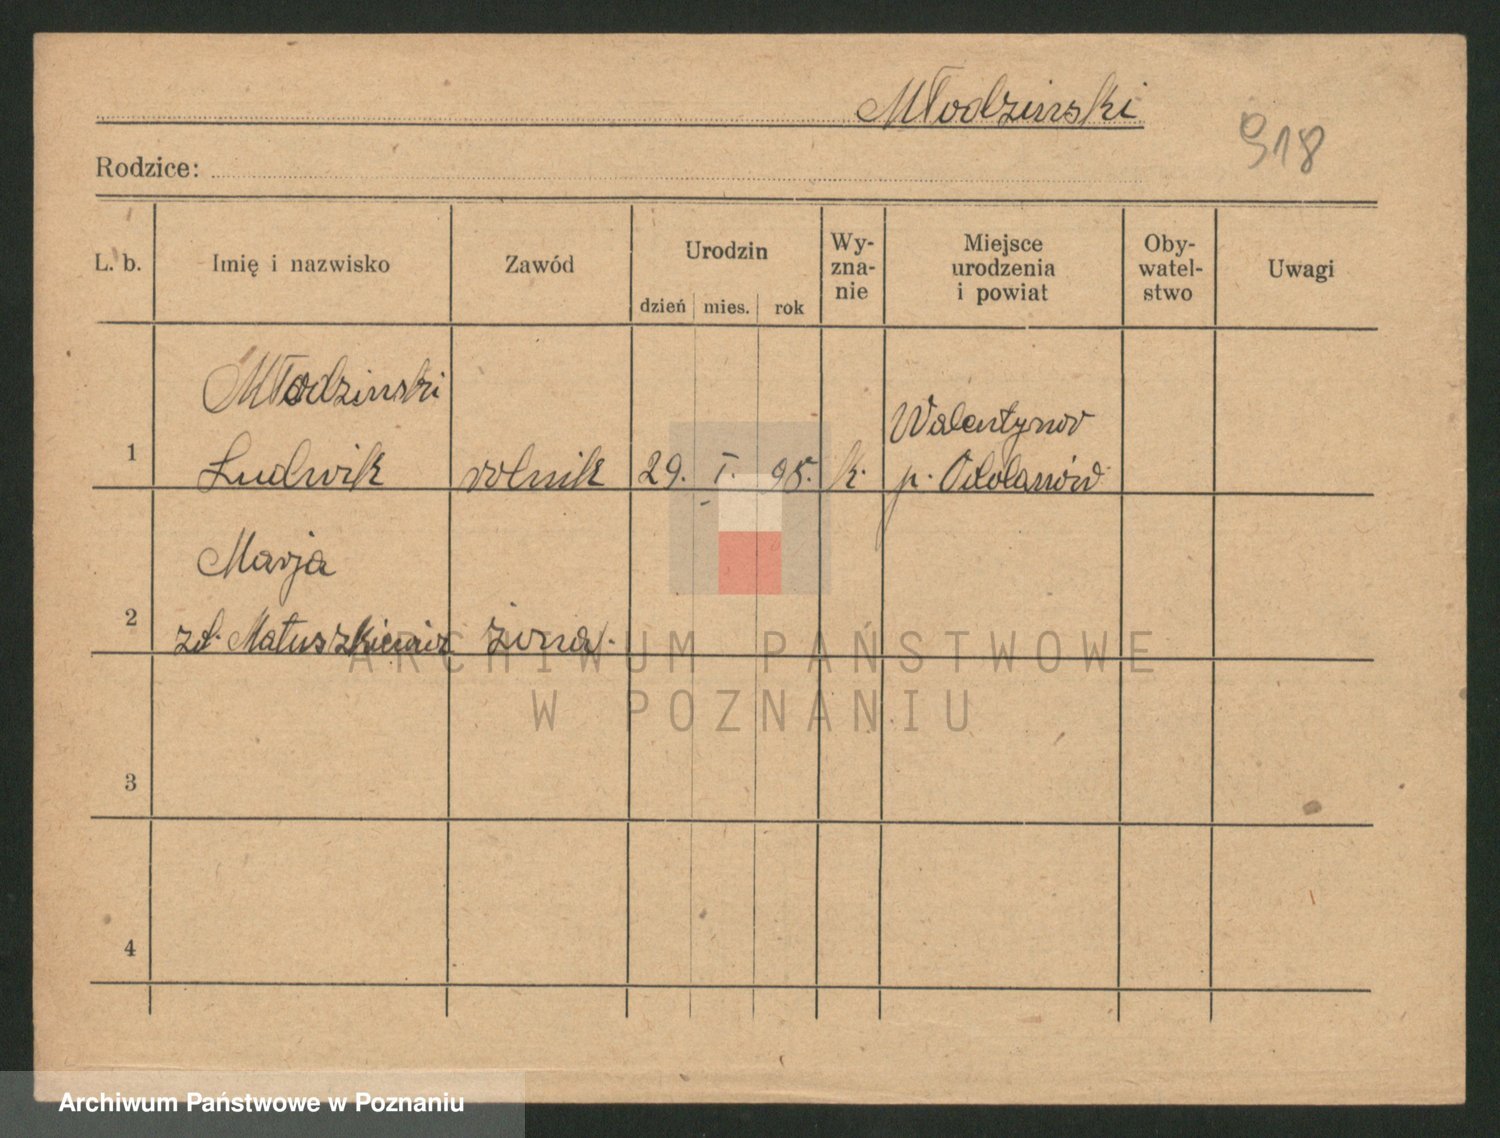 Młodzinski
918
Rodzice:
L. b.
Imię i nazwisko
Zawód
Urodzin
dzień
mies.
rok
Wy-
zna-
nie
Miejsce
urodzenia
i powiat
Oby-
watel-
stwo
Uwagi
Młodzinski
1
Ludwik
rolnik
29.
I.
95.
k.
Walentynow
p. Odolanów
Marja
2
zd. Matuszkiewicz
żona.
3
4
ARCHIWUM PAŃSTWOWE
W POZNANIU
Archiwum Państwowe w Poznaniu